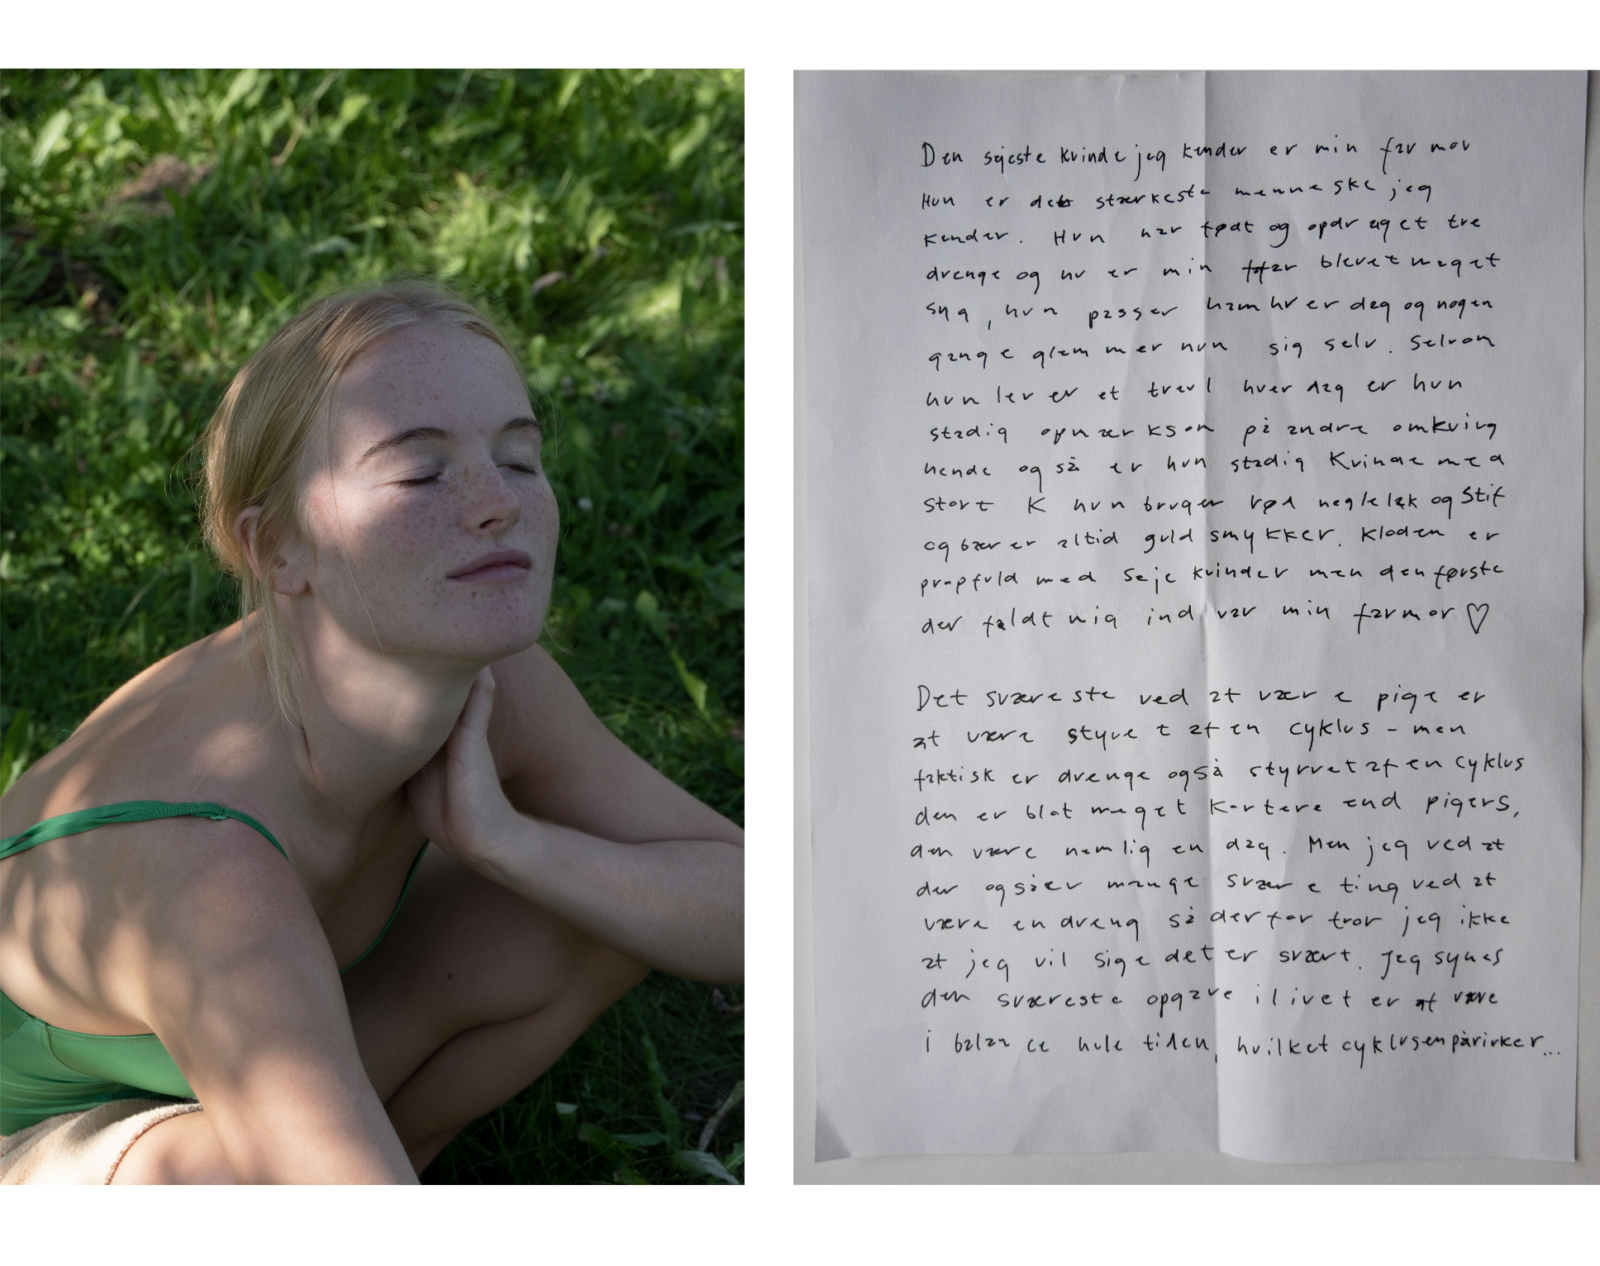 Den sejeste kvinde jeg kender er min farmor
Hun er det stærkeste menneske jeg
kender. Hun har født og opdraget tre
drenge og nu er min farfar blevet meget
syg, hun passer ham hver dag og nogen
gange glemmer hun sig selv. Selvom
hun lever et travl hverdag er hun
stadig opmærksom på andre omkring
hende og så er hun stadig Kvinde med
stort K hun bruger rød neglelak og stif
og bærer altid guld smykker. Kloden er
propfuld med seje kvinder men den første
der faldt mig ind var min farmor ♡
Det sværeste ved at være pige er
at være styret af en cyklus - men
faktisk er drenge også styrret af en cyklus
den er blot meget kortere end pigers,
den være nemlig en dag. Men jeg ved at
der også er mange svære ting ved at
være en dreng så derfor tror jeg ikke
at jeg vil sige det er svært. Jeg synes
den sværeste opgave i livet er at være
i balance hele tiden, hvilket cyklusen påvirker...